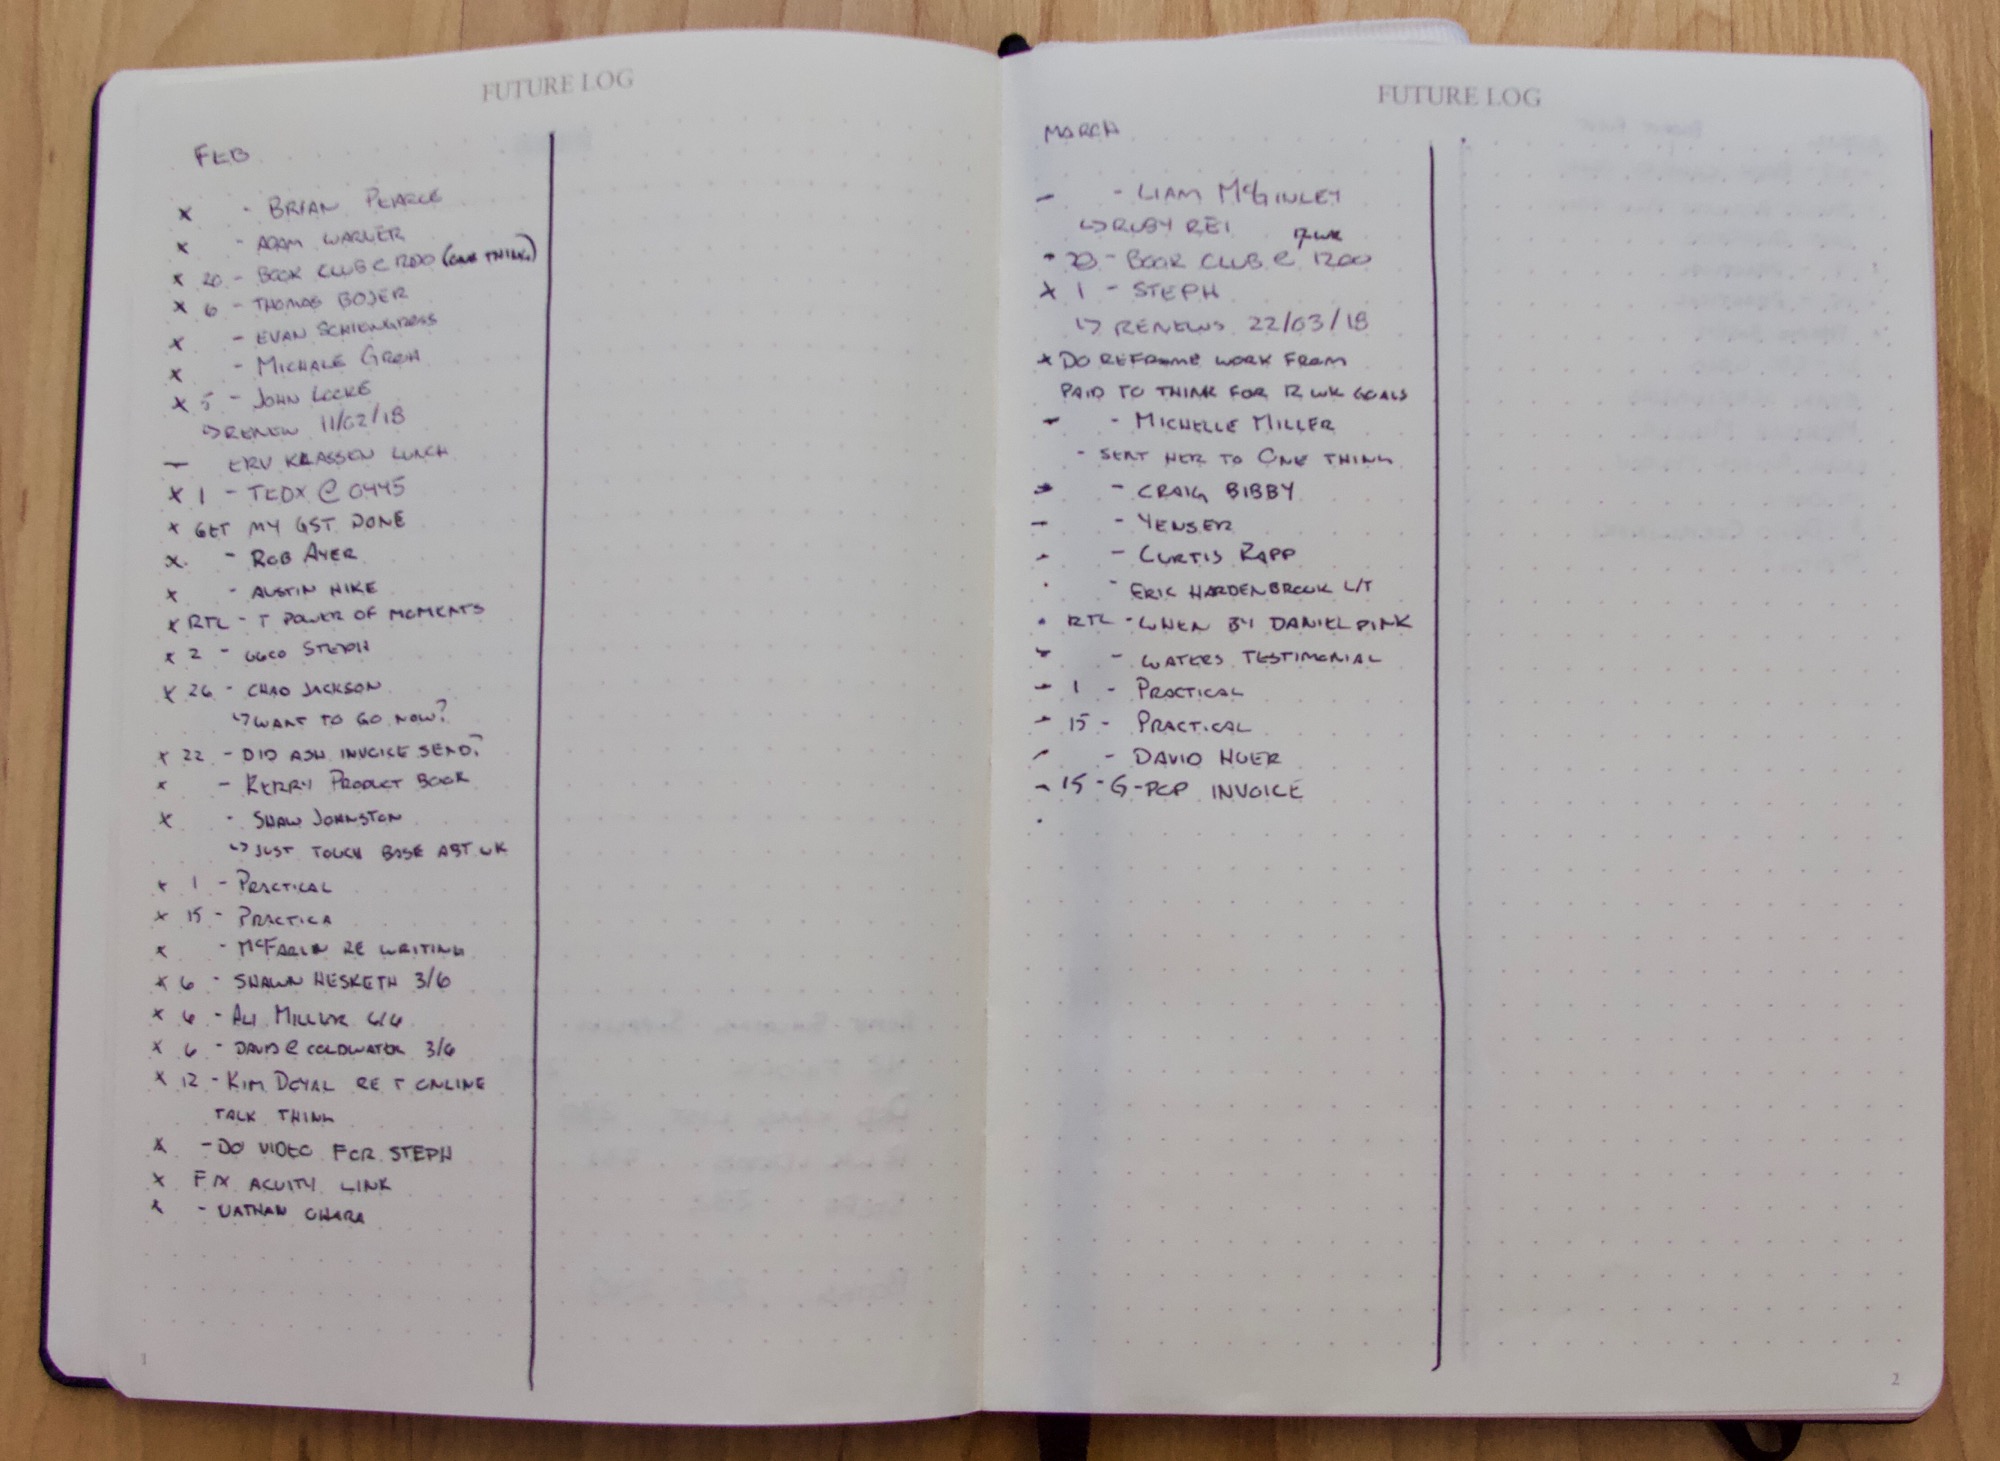 FUTURE LOG
FEB
x - BRIAN PEARCE
x - ADAM WARNER
x 20 - BOOK CLUB @ 1200 (ONE THING)
x 6 - THOMAS BOJER
x - EVAN
x - MICHALE GROH
x 5 - JOHN LOCKE
↳ RENEW 11/02/18
— ERV KLASSEN LUNCH
x 1 - TEDX @ 0445
x GET MY GST DONE
x - ROB AYER
x - AUSTIN HIKE
x RTL - T POWER OF MOMENTS
x 2 - STEPH
x 26 - CHAD JACKSON
↳ WANT TO GO NOW?
x 22 - DID ASH INVOICE SEND?
x - KERRY PRODUCT BOOK
x - SHAW JOHNSTON
↳ JUST TOUCH BASE ABT UK
x 1 - PRACTICAL
x 15 - PRACTICA
x - MCFARLIN RE WRITING
x 6 - SHAWN HESKETH 3/6
x 6 - ALI MILLER 6/6
x 6 - DAVID @ COLDWATER 3/6
x 12 - KIM DOYAL RE T ONLINE
TALK THING
x - DO VIDEO FOR STEPH
x FIX ACUITY LINK
x - NATHAN OHARA
1
FUTURE LOG
MARCH
- - LIAM MCGINLEY
↳ RUBY REI
12 WK
• 20 - BOOK CLUB @ 1200
x 1 - STEPH
↳ RENEWS 22/03/18
x DO REFRAME WORK FROM
PAID TO THINK FOR 12 WK GOALS
- - MICHELLE MILLER
- SENT HER TO ONE THING
- - CRAIG BIBBY
- - YENSER
- - CURTIS RAPP
• - ERIC HARDENBROOK L/T
• RTL - WHEN BY DANIEL PINK
- - WATERS TESTIMONIAL
- 1 - PRACTICAL
- 15 - PRACTICAL
- - DAVID HUER
- 15 - G-PCP INVOICE
•
2